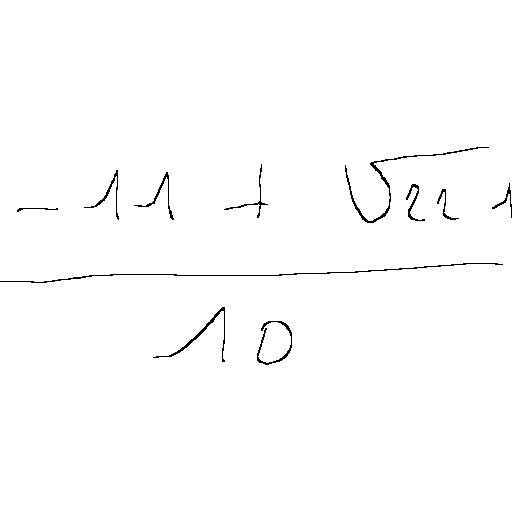 -11 + √221
10